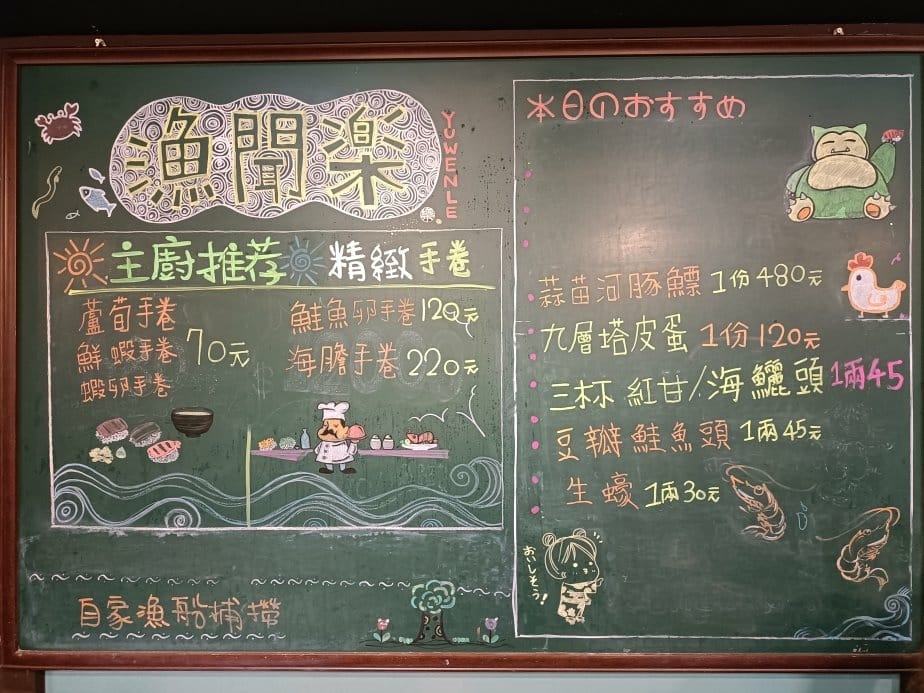 漁聞楽
YUWENLE
主廚推荐 精緻手卷
蘆荀手卷
鮮蝦手卷 70元
蝦卵手卷
鮭魚卵手卷 120元
海膽手卷 220元
自家漁船捕撈
本日のおすすめ
蒜苗河豚鰾 1份480元
九層塔皮蛋 1份120元
三杯 紅甘/海鱺頭 1兩45
豆瓣鮭魚頭 1兩45元
生蠔 1兩30元
おいしそう!